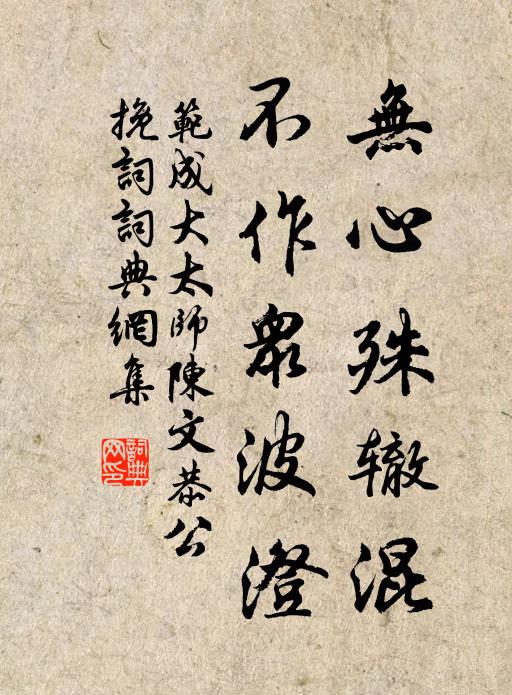 無心殊辙混
不作眾波澄
範成大太師陳文恭公
挽詞詞典網集
詞典網印